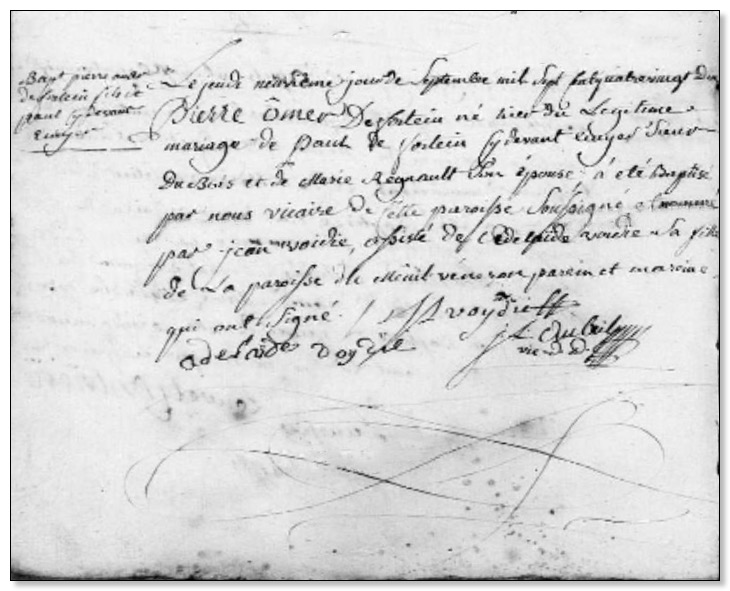 Bapt pierre omer
de forlein fils de
paul cydevant
Ecuyer
Le jeudi neuvième jour de Septembre mil sept
Pierre ômer De forlein né hier du Legitime
mariage de Paul de forlein cydevant Ecuyer Sieur
Du Bois et de Marie Regnault Son épouse à été Baptisé
par nous vicaire de Cette paroisse Soussigné et nommé
par jean voidie, assisté de adelaide voidie Sa fille
de La paroisse du Menil veneron parein et mareine
qui ont signé. J voydie
adelaïde voydie
vic